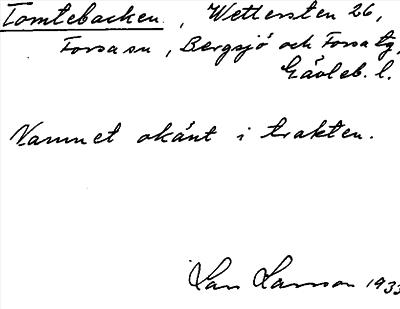 Tomtebacken, Wettersten 26,
Forsa sn, Bergsjö och Forsa tg,
Gävleb. l.
Namnet okänt i trakten.
Lars Larsson 1933